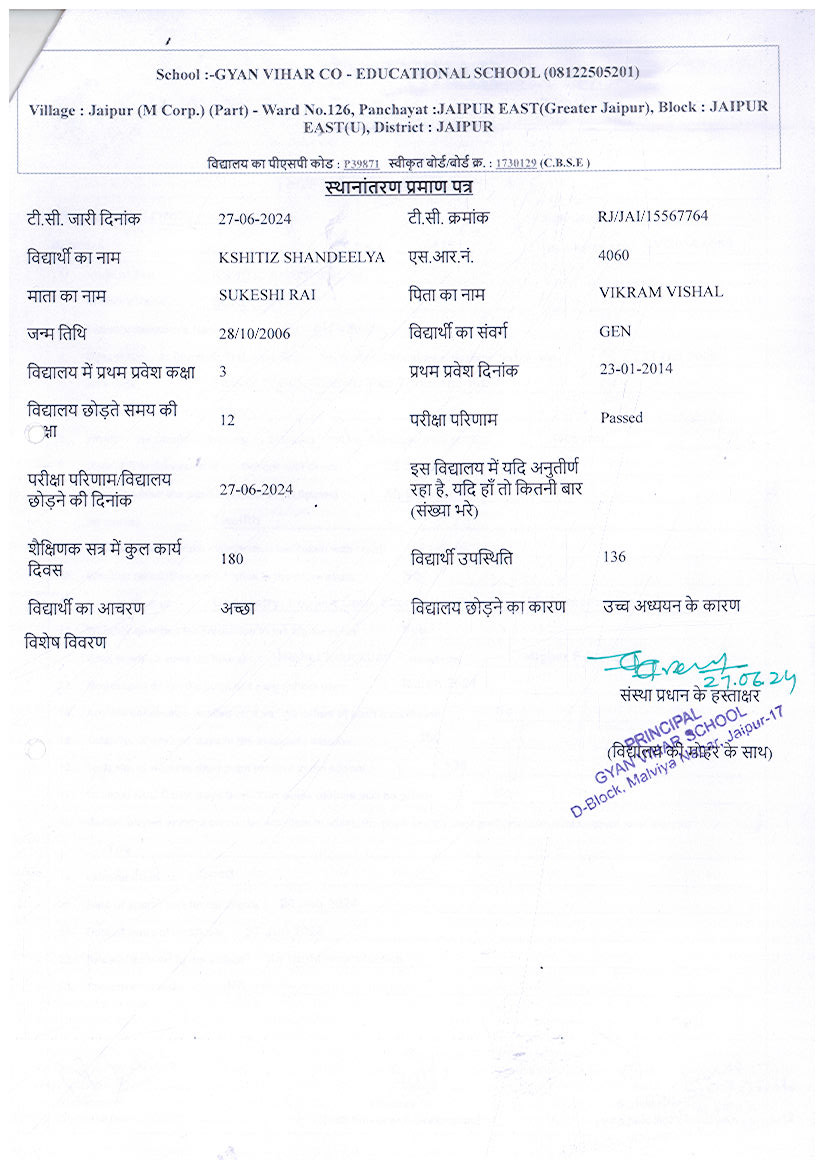 School :-GYAN VIHAR CO - EDUCATIONAL SCHOOL (08122505201)
Village : Jaipur (M Corp.) (Part) - Ward No.126, Panchayat :JAIPUR EAST(Greater Jaipur), Block : JAIPUR
EAST(U), District : JAIPUR
विद्यालय का पीएसपी कोड : P39871 स्वीकृत बोर्ड/बोर्ड क्र. : 1730129 (C.B.S.E )
स्थानांतरण प्रमाण पत्र
टी.सी. जारी दिनांक 27-06-2024 टी.सी. क्रमांक RJ/JAI/15567764
विद्यार्थी का नाम KSHITIZ SHANDEELYA एस.आर.नं. 4060
माता का नाम SUKESHI RAI पिता का नाम VIKRAM VISHAL
जन्म तिथि 28/10/2006 विद्यार्थी का संवर्ग GEN
विद्यालय में प्रथम प्रवेश कक्षा 3 प्रथम प्रवेश दिनांक 23-01-2014
विद्यालय छोड़ते समय की
क्षा 12 परीक्षा परिणाम Passed
परीक्षा परिणाम/विद्यालय
छोड़ने की दिनांक 27-06-2024
इस विद्यालय में यदि अनुतीर्ण
रहा है, यदि हाँ तो कितनी बार
(संख्या भरे)
शैक्षिणक सत्र में कुल कार्य
दिवस 180 विद्यार्थी उपस्थिति 136
विद्यार्थी का आचरण अच्छा विद्यालय छोड़ने का कारण उच्च अध्ययन के कारण
विशेष विवरण
27.06.24
संस्था प्रधान के हस्ताक्षर
(विद्यालय की मोहर के साथ)
PRINCIPAL
GYAN VIHAR SCHOOL
D-Block, Malviya Nagar, Jaipur-17